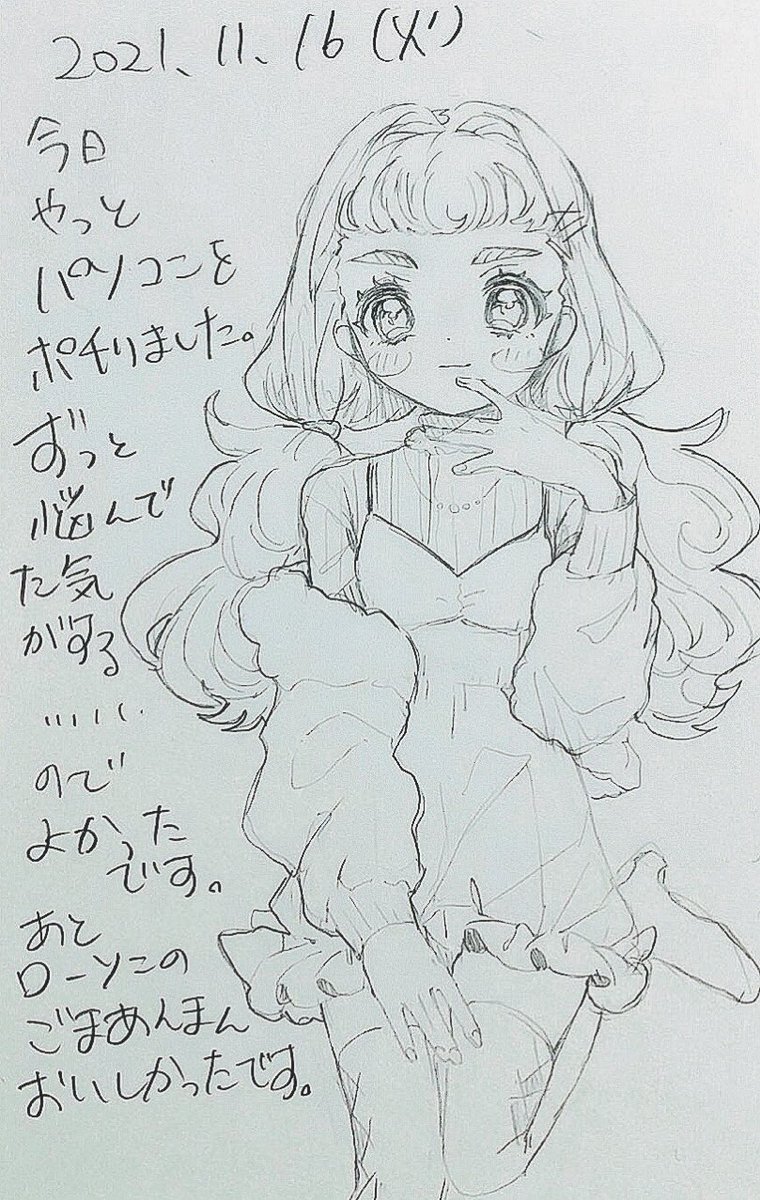 2021.11.16(火)
今日
やっと
パソコンを
ポチりました。
ずっと
悩んで
た気
がする
.....
ので
よかった
です。
あと
ローソンの
ごまあんまん
おいしかったです。